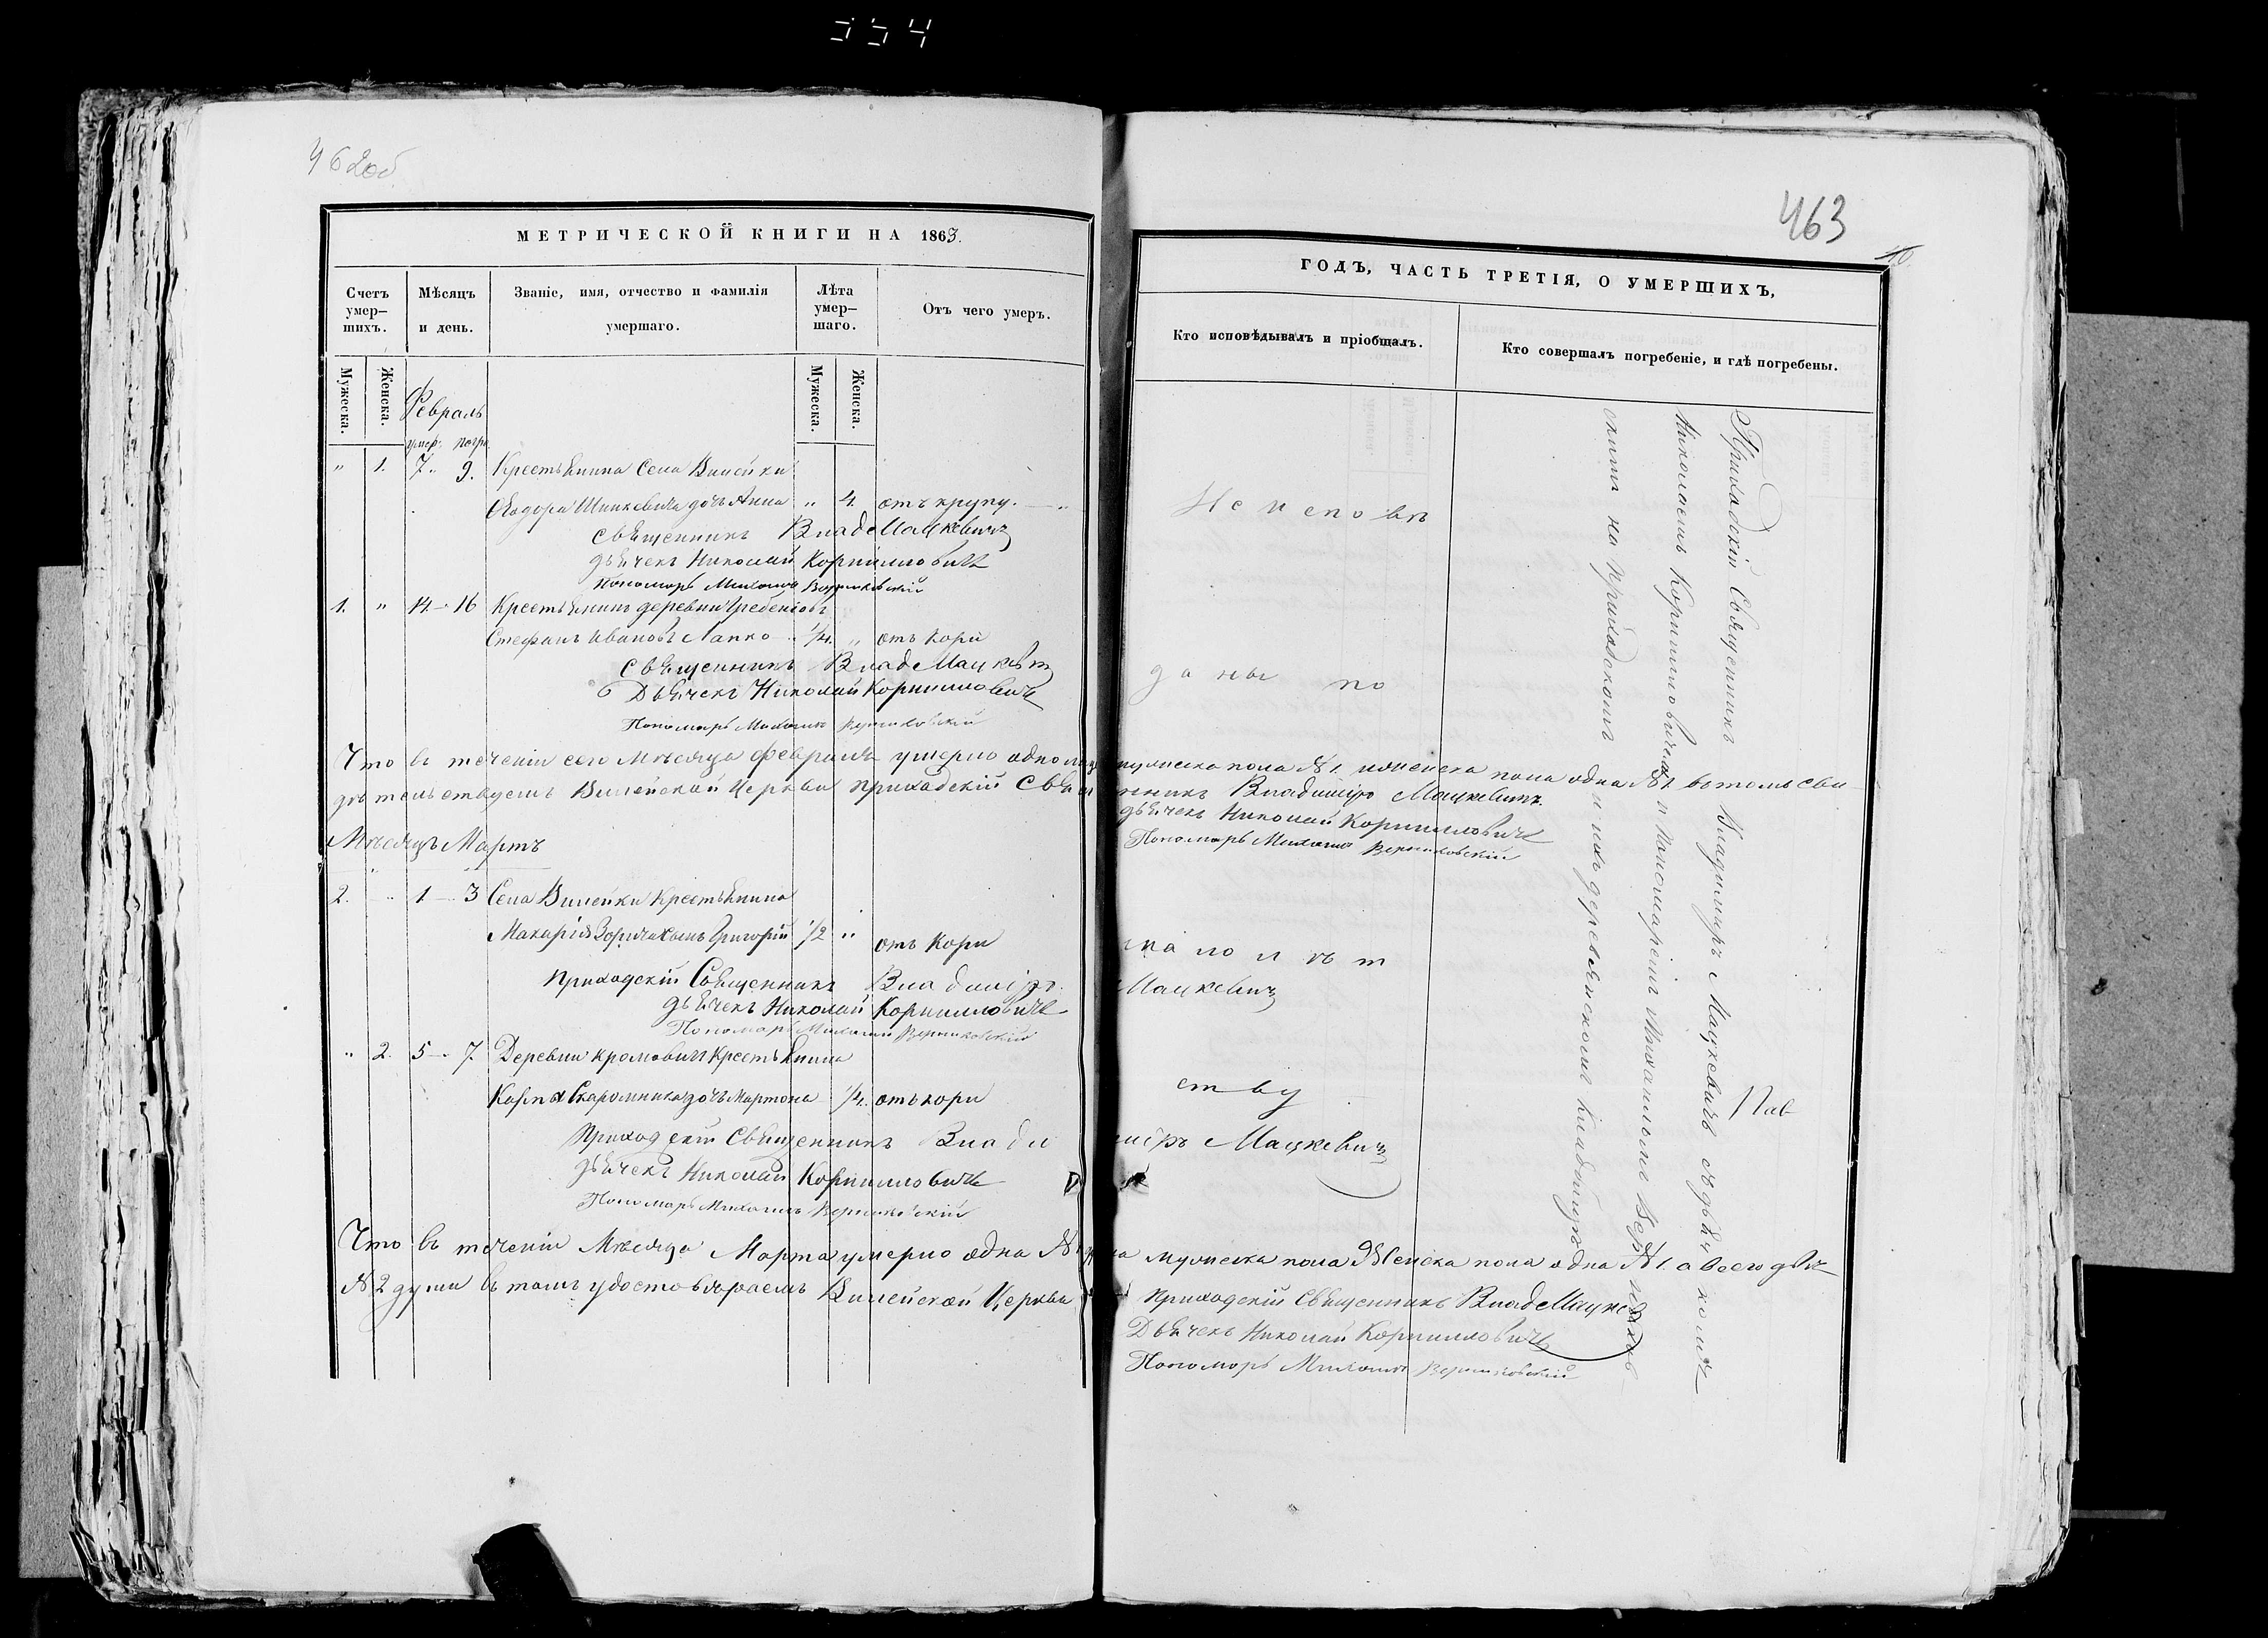 554
462об
МЕТРИЧЕСКОЙ КНИГИ НА 1863.
Счетъ умер-
шихъ.
Мѣсяцъ
и день.
Званіе, имя, отчество и фамилія
умершаго.
Лѣта
умер-
шаго.
Отъ чего умеръ.
Мужеска.
Женска.
Мужеска.
Женска.
Февраль
умер. погр.
" 1. 7. 9. Крестьянина Села Вилейки
Ѳедора Шинкевича дочь Анна " 4. отъ крупу.
Священникъ Влад Мацкевичъ
дьячекъ Николай Корнилловичъ
Пономарь Михаилъ Верниковскій
1. " 14 - 16 Крестьянинъ деревни
Стефанъ Ивановъ Лапко 1/4. " отъ кори
Священникъ Влад Мацкевич
Дьячекъ Николай Корнилловичъ
Пономарь Михаилъ Верниковскій
Что въ теченіи сего мѣсяца февраля умерло одно
дѣтельствуемъ Вилейской Церкви приходскій Свя
Мѣсяцъ Мартъ
2. " 1 - 3 Села Вилейки Крестьянина
Макарія сынъ Григорій 1/2 " отъ кори
Приходскій Священникъ Владиміръ
дьячекъ Николай Корнилловичъ
Пономарь Михаилъ Верниковскій
" 2. 5 - 7. Деревни Кромовичъ Крестьянина
Карпа дочь Мартона 1/4. отъ кори
Приходскій Священникъ Влади
дьячекъ Николай Корнилловичъ
Пономарь Михаилъ Верниковскій
Что въ теченіи Мѣсяца Марта умерло одна №
№ 2 души въ томъ удостовѣряемъ Вилейской Церкви
463
ГОДЪ, ЧАСТЬ ТРЕТІЯ, О УМЕРШИХЪ,
Кто исповѣдывалъ и пріобщалъ.
Кто совершалъ погребеніе, и гдѣ погребены.
Не исповѣ
даны по
мужеска пола № 1. женска пола одна № 1. въ томъ сви
нникъ Владиміръ Мацкевичъ.
дьячекъ Николай Корнилловичъ
Пономарь Михаилъ Верниковскій
мало лѣт
Мацкевичъ
ству
міръ Мацкевичъ
мужеска пола Женска пола одна № 1. а всего двѣ
Приходскій Священникъ Влад Мацкев
Дьячекъ Николай Корнилловичъ
Пономарь Михаилъ Верниковскій
Приходскій Священникъ Владимиръ Мацкевичъ съ дьячкомъ
Николаемъ Корнилловичемъ и пономаремъ Михаиломъ Верниковскимъ
на приходскомъ деревянскомъ кладбищѣ